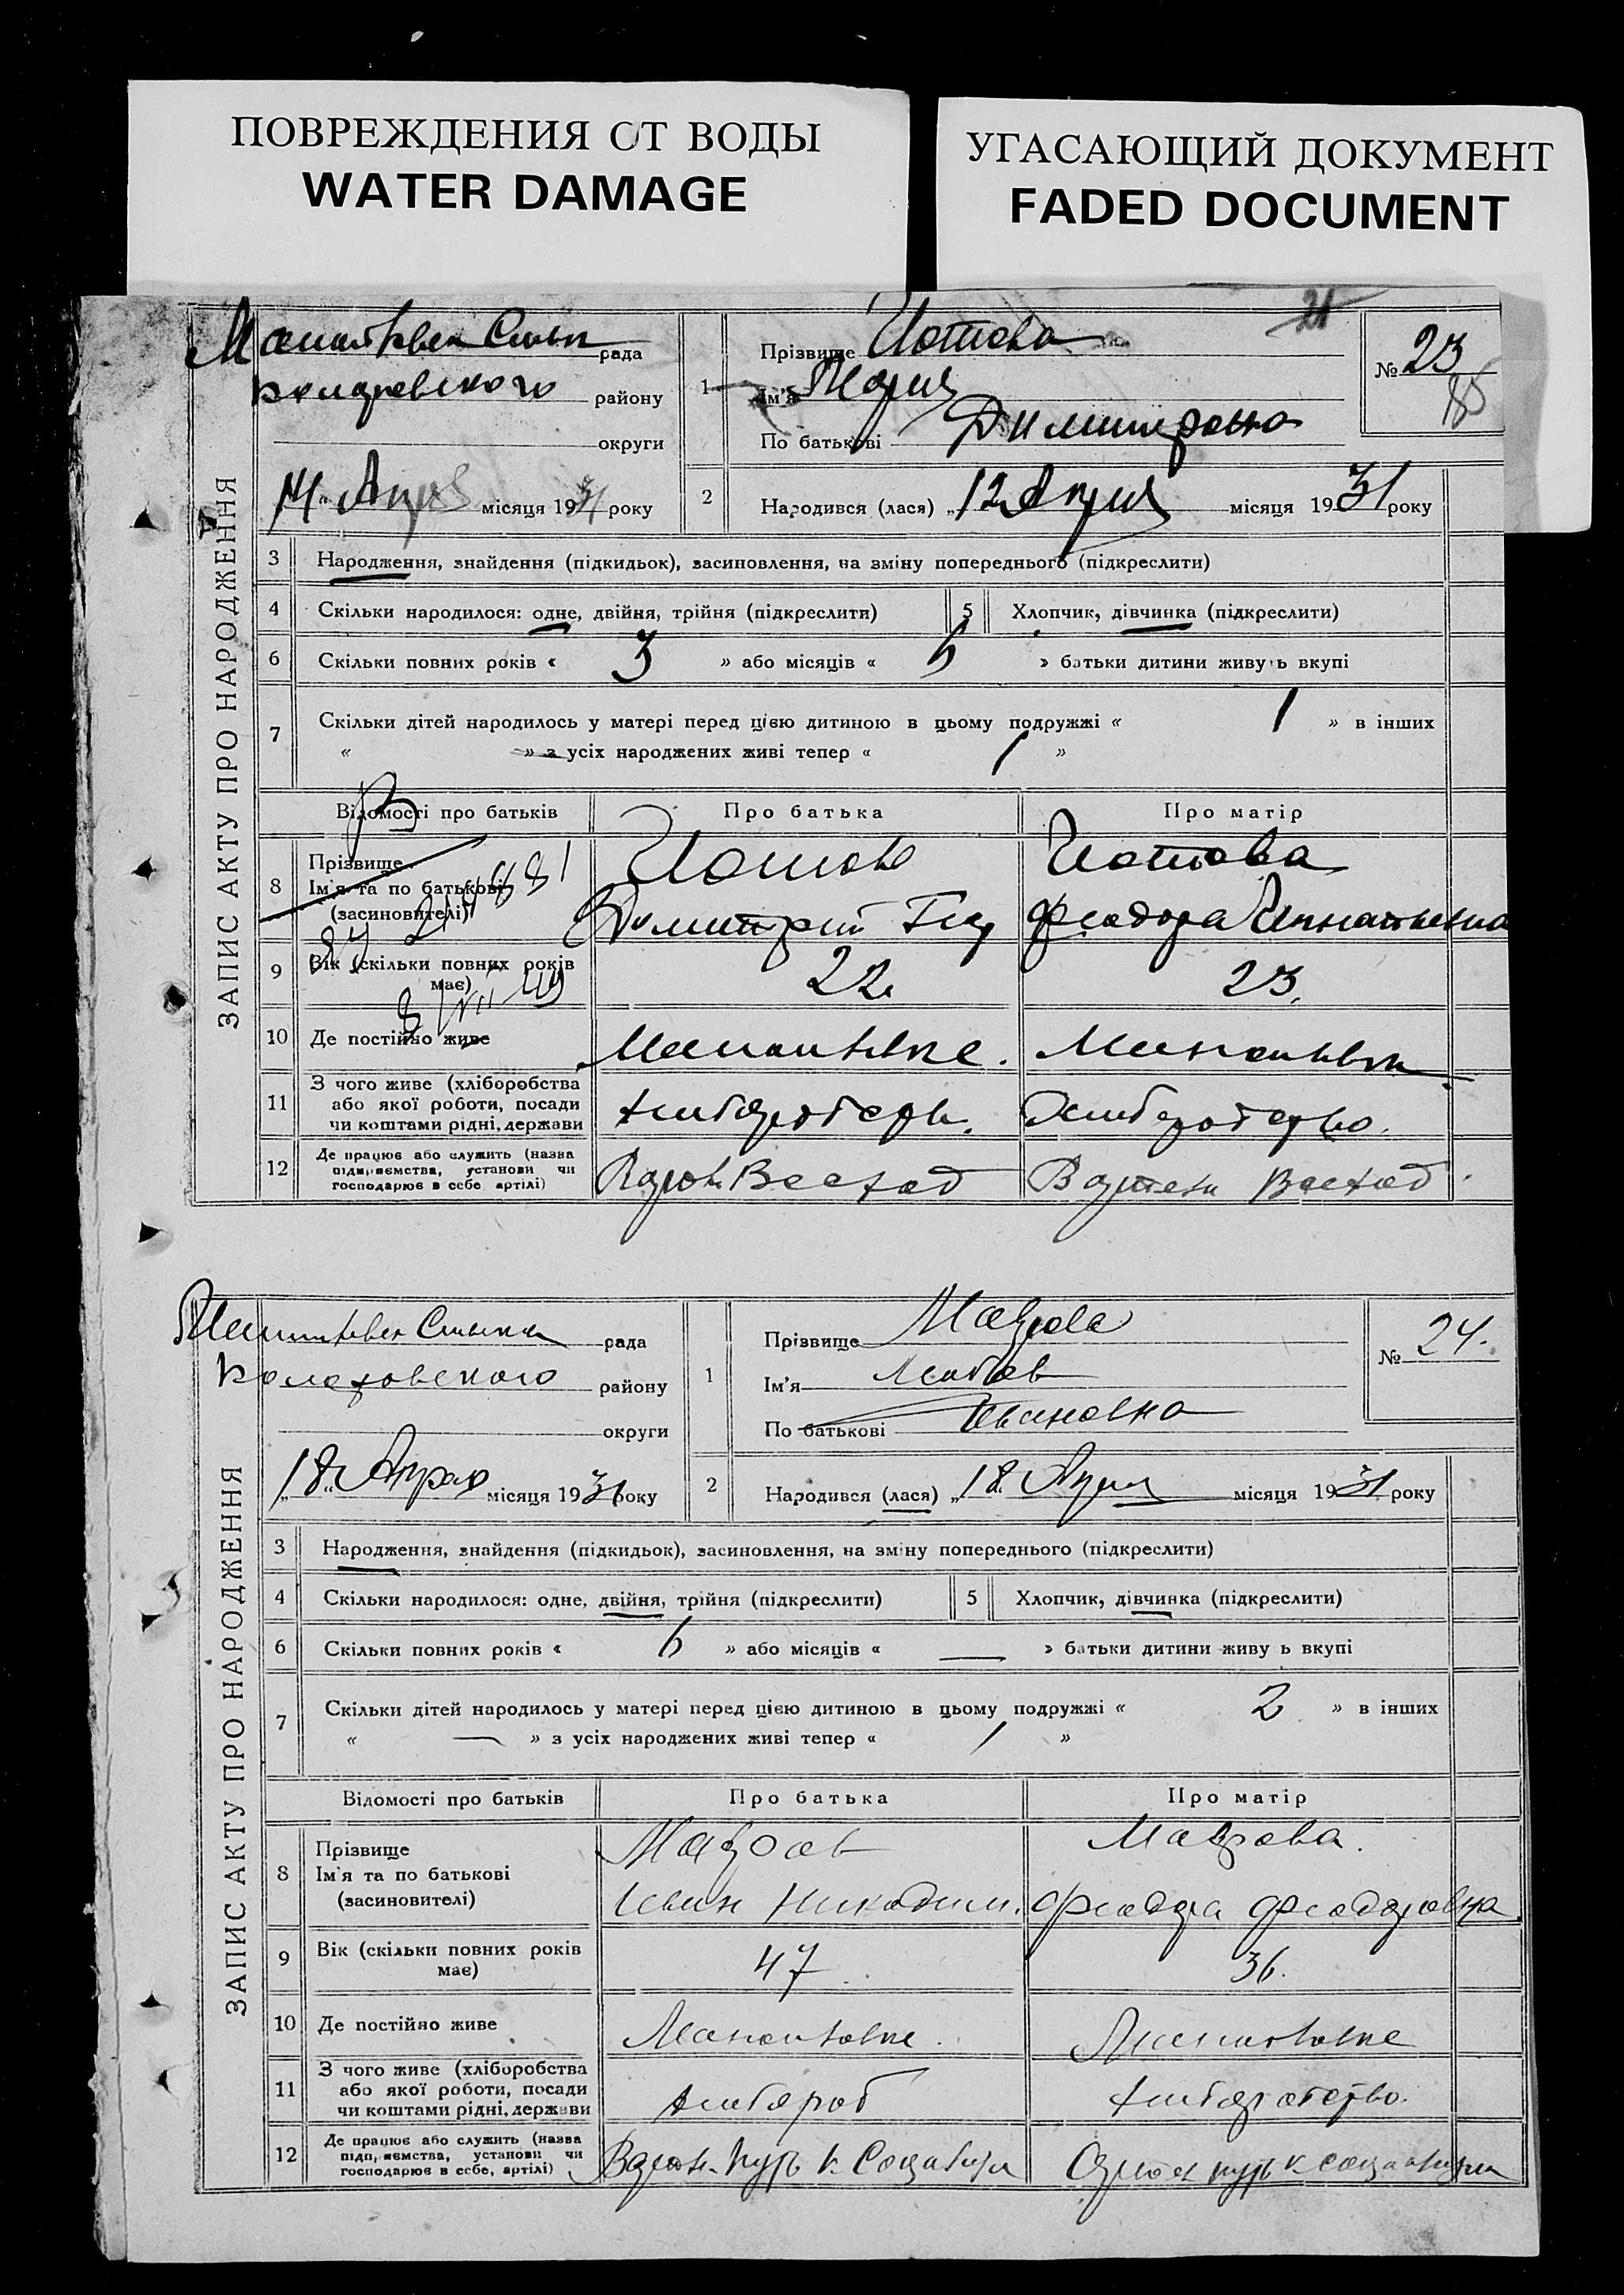 ПОВРЕЖДЕНИЯ ОТ ВОДЫ
WATER DAMAGE
УГАСАЮЩИЙ ДОКУМЕНТ
FADED DOCUMENT
ЗАПИС АКТУ ПРО НАРОДЖЕННЯ
рада
району
округи
14 Апр місяця 1931 року
1
Прізвище Иотова
Ім'я Мария
По батькові Димитровна
№ 23
85
2 Народився (лася) „12 Апреля місяця 1931 року
3 Народження, знайдення (підкидьок), засиновлення, на зміну попереднього (підкреслити)
4 Скільки народилося: одне, двійня, трійня (підкреслити) 5 Хлопчик, дівчинка (підкреслити)
6 Скільки повних років « 3 » або місяців « 6 » батьки дитини живуть вкупі
7 Скільки дітей народилось у матері перед цією дитиною в цьому подружжі « 1 » в інших
« » з усіх народжених живі тепер « 1 »
Відомості про батьків Про батька Про матір
8 Прізвище Иотов Иотова
Ім'я та по батькові Димитрий Феодора Игнатьевна
(засиновителі)
9 Вік (скільки повних років має) 22 23.
10 Де постійно живе
11 З чого живе (хліборобства або якої роботи, посади чи коштами рідні, держави
12 Де працює або служить (назва підприємства, установи чи господарює в себе, артілі) Восход Восход
ЗАПИС АКТУ ПРО НАРОДЖЕННЯ
рада
району
округи
„18“ Апреля місяця 1931 року
1
Прізвище Маврова
Ім'я Любов
По батькові Ивановна
№ 24.
2 Народився (лася) „18 Апреля місяця 1931 року
3 Народження, знайдення (підкидьок), засиновлення, на зміну попереднього (підкреслити)
4 Скільки народилося: одне, двійня, трійня (підкреслити) 5 Хлопчик, дівчинка (підкреслити)
6 Скільки повних років « 6 » або місяців « — » батьки дитини живуь вкупі
7 Скільки дітей народилось у матері перед цією дитиною в цьому подружжі « 2 » в інших
« — » з усіх народжених живі тепер « 1 »
Відомості про батьків Про батька Про матір
8 Прізвище Мавров Маврова.
Ім'я та по батькові Иван Никодим. Феодора Феодоровна
(засиновителі)
9 Вік (скільки повних років має) 47 36.
10 Де постійно живе
11 З чого живе (хліборобства або якої роботи, посади чи коштами рідні, держави Хлебороб
12 Де працює або служить (назва підприємства, установи чи господарює в себе, артілі) путь к Социализм путь к социализм